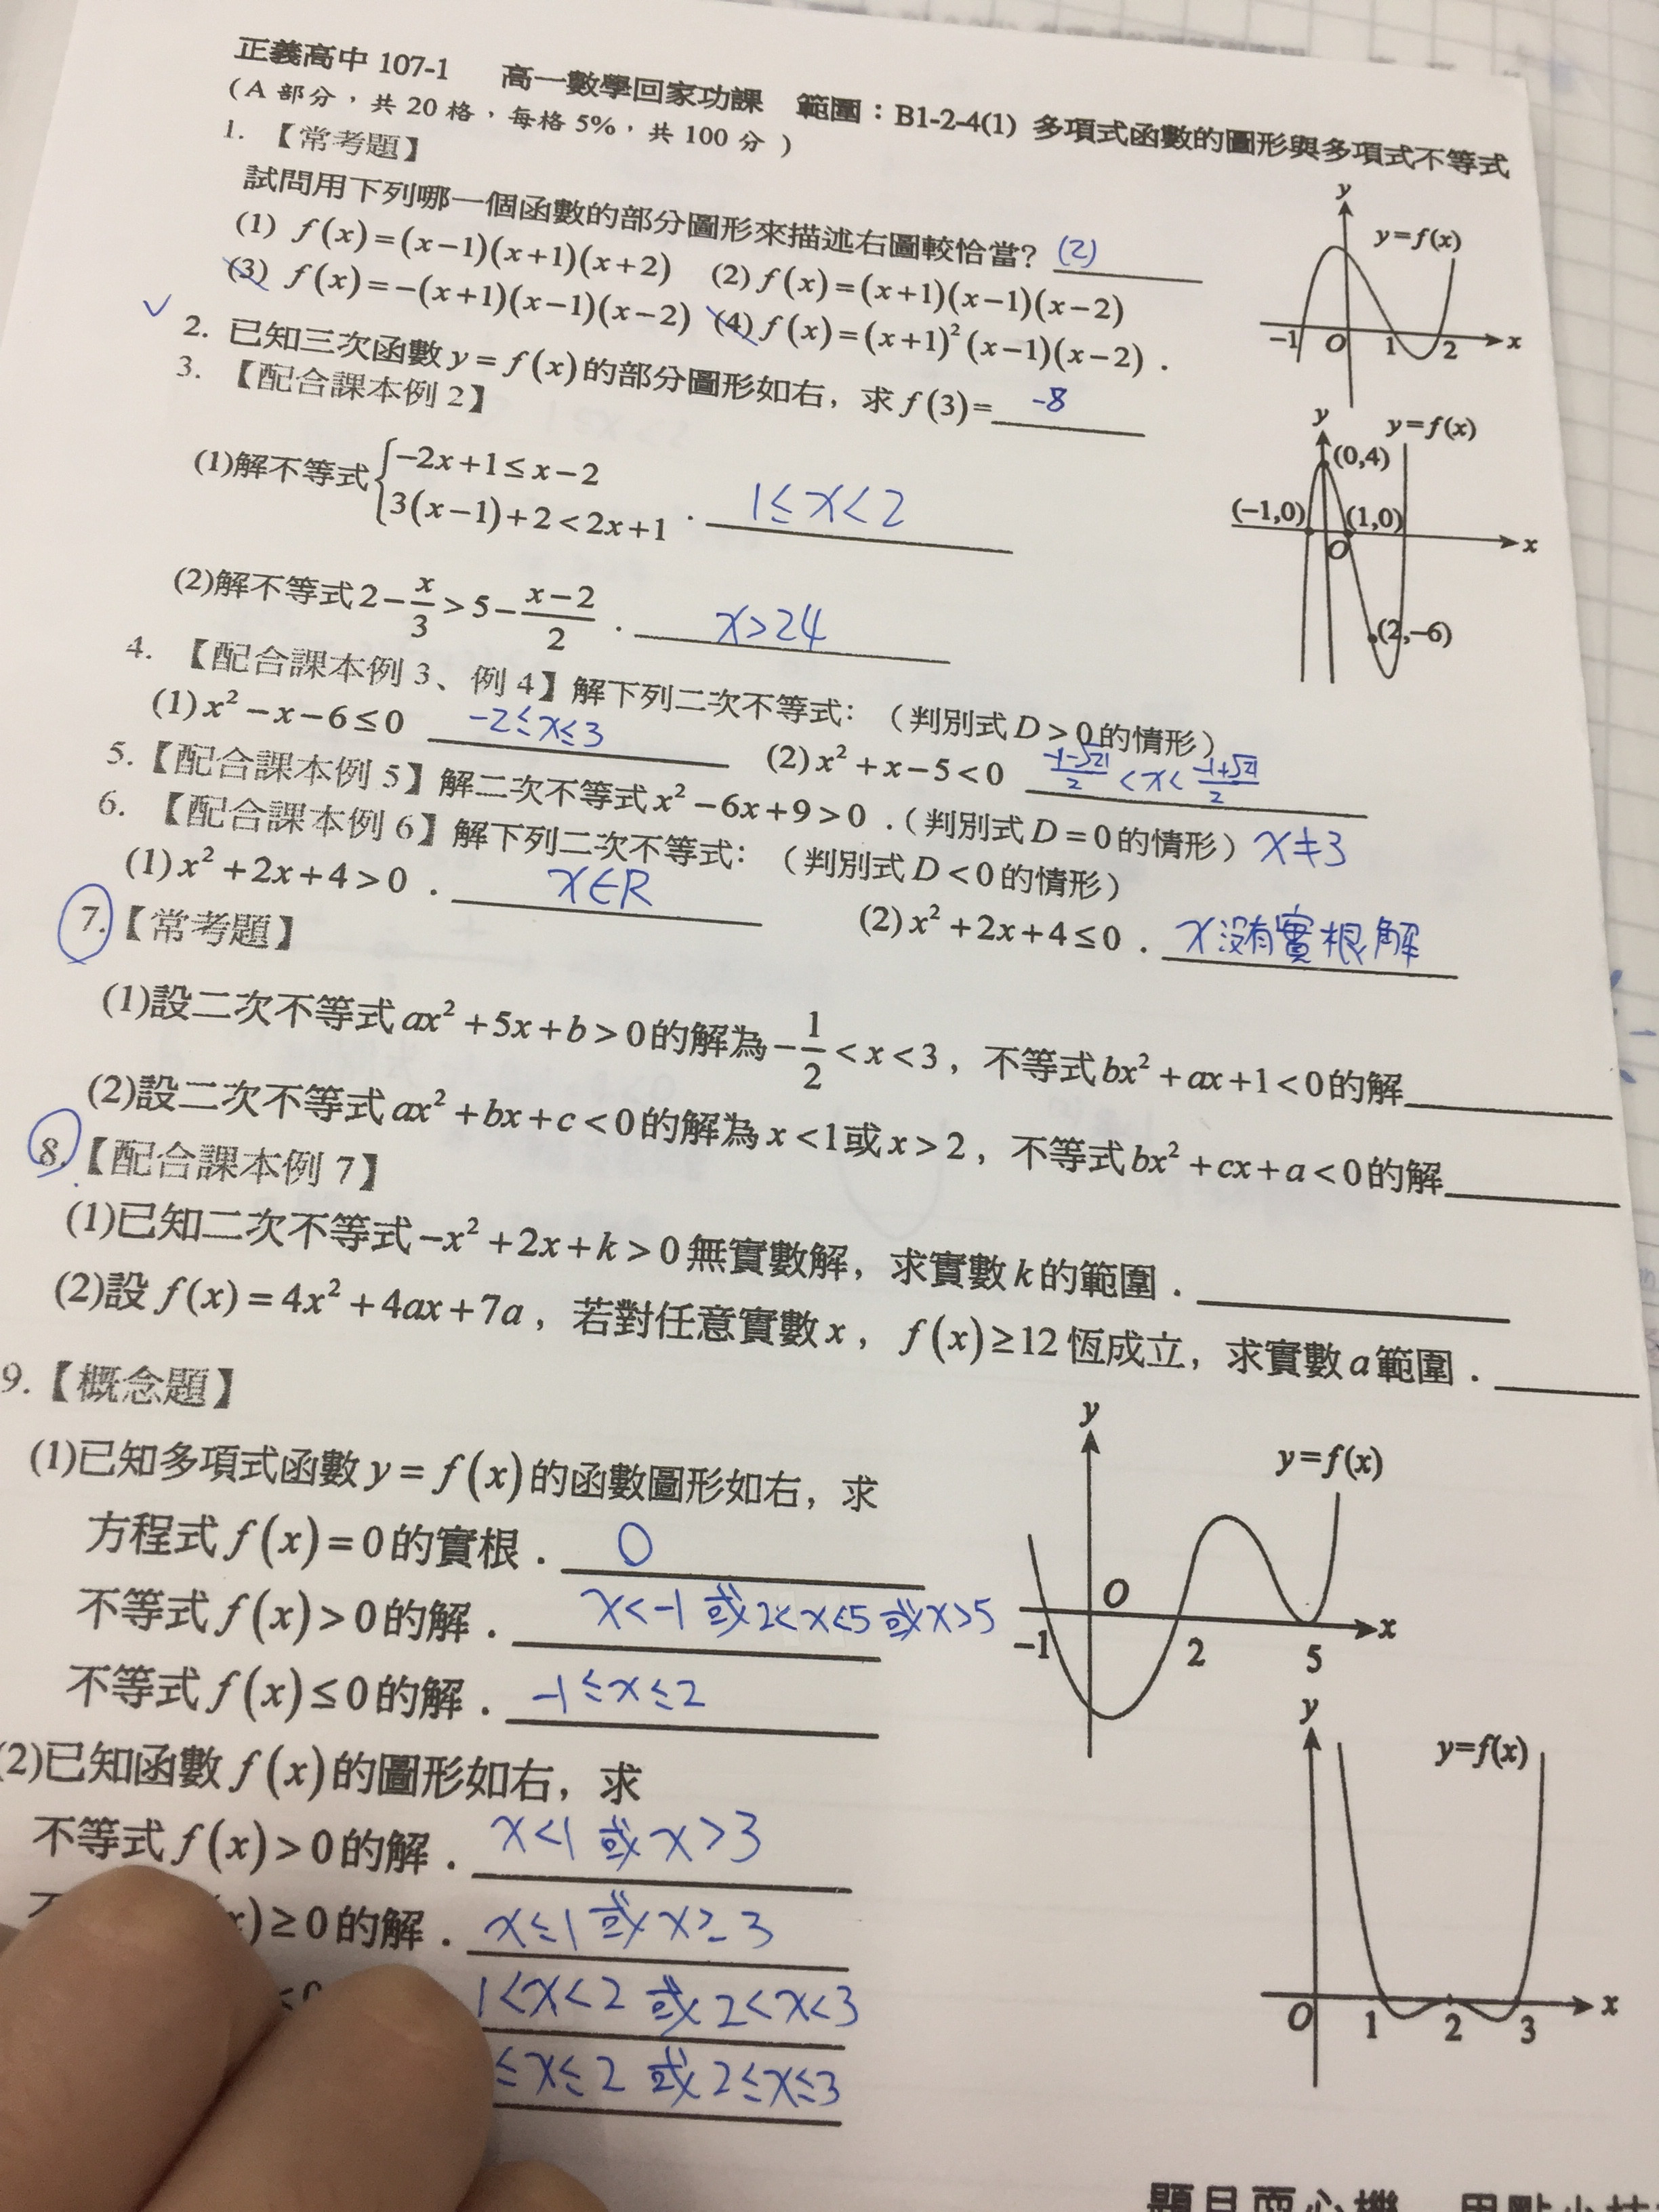 正義高中 107-1 高一數學回家功課 範圍：B1-2-4(1) 多項式函數的圖形與多項式不等式
(A 部分，共 20 格，每格 5%，共 100 分 )
1. 【常考題】
試問用下列哪一個函數的部分圖形來描述右圖較恰當? (2)
(1) f(x)=(x−1)(x+1)(x+2) (2) f(x)=(x+1)(x−1)(x−2)
(3) f(x)=−(x+1)(x−1)(x−2) (4) f(x)=(x+1)²(x−1)(x−2) .
y
y=f(x)
−1 O 1 2 x
✓ 2. 已知三次函數 y=f(x)的部分圖形如右，求 f(3)= -8
y y=f(x)
(0,4)
(−1,0) (1,0)
O x
(2,−6)
3. 【配合課本例 2】
(1)解不等式{−2x+1≤x−2
3(x−1)+2<2x+1 . 1≤x<2
(2)解不等式 2−x/3>5−(x−2)/2 . x>24
4. 【配合課本例 3、例 4】解下列二次不等式：（判別式 D>0的情形）
(1) x²−x−6≤0 -2≤x≤3 (2) x²+x−5<0 (-1-√21)/2 <x< (-1+√21)/2
5.【配合課本例 5】解二次不等式 x²−6x+9>0 .（判別式 D=0的情形）x≠3
6. 【配合課本例 6】解下列二次不等式：（判別式 D<0的情形）
(1) x²+2x+4>0 . x∈R (2) x²+2x+4≤0 . x沒有實根解
7.【常考題】
(1)設二次不等式 ax²+5x+b>0的解為−1/2<x<3，不等式 bx²+ax+1<0的解
(2)設二次不等式 ax²+bx+c<0的解為 x<1或 x>2，不等式 bx²+cx+a<0的解
8.【配合課本例 7】
(1)已知二次不等式−x²+2x+k>0無實數解，求實數 k 的範圍．
(2)設 f(x)=4x²+4ax+7a，若對任意實數 x，f(x)≥12 恆成立，求實數 a 範圍．
9.【概念題】
(1)已知多項式函數 y=f(x)的函數圖形如右，求
方程式 f(x)=0的實根． 0
不等式 f(x)>0的解． x<-1 或 2<x<5 或 x>5
不等式 f(x)≤0的解． -1≤x≤2
y
y=f(x)
O
−1 2 5 x
(2)已知函數 f(x)的圖形如右，求
不等式 f(x)>0的解． x<1 或 x>3
x)≥0的解． x≤1 或 x≥3
1<x<2 或 2<x<3
≤x≤2 或 2≤x≤3
y
y=f(x)
O 1 2 3 x